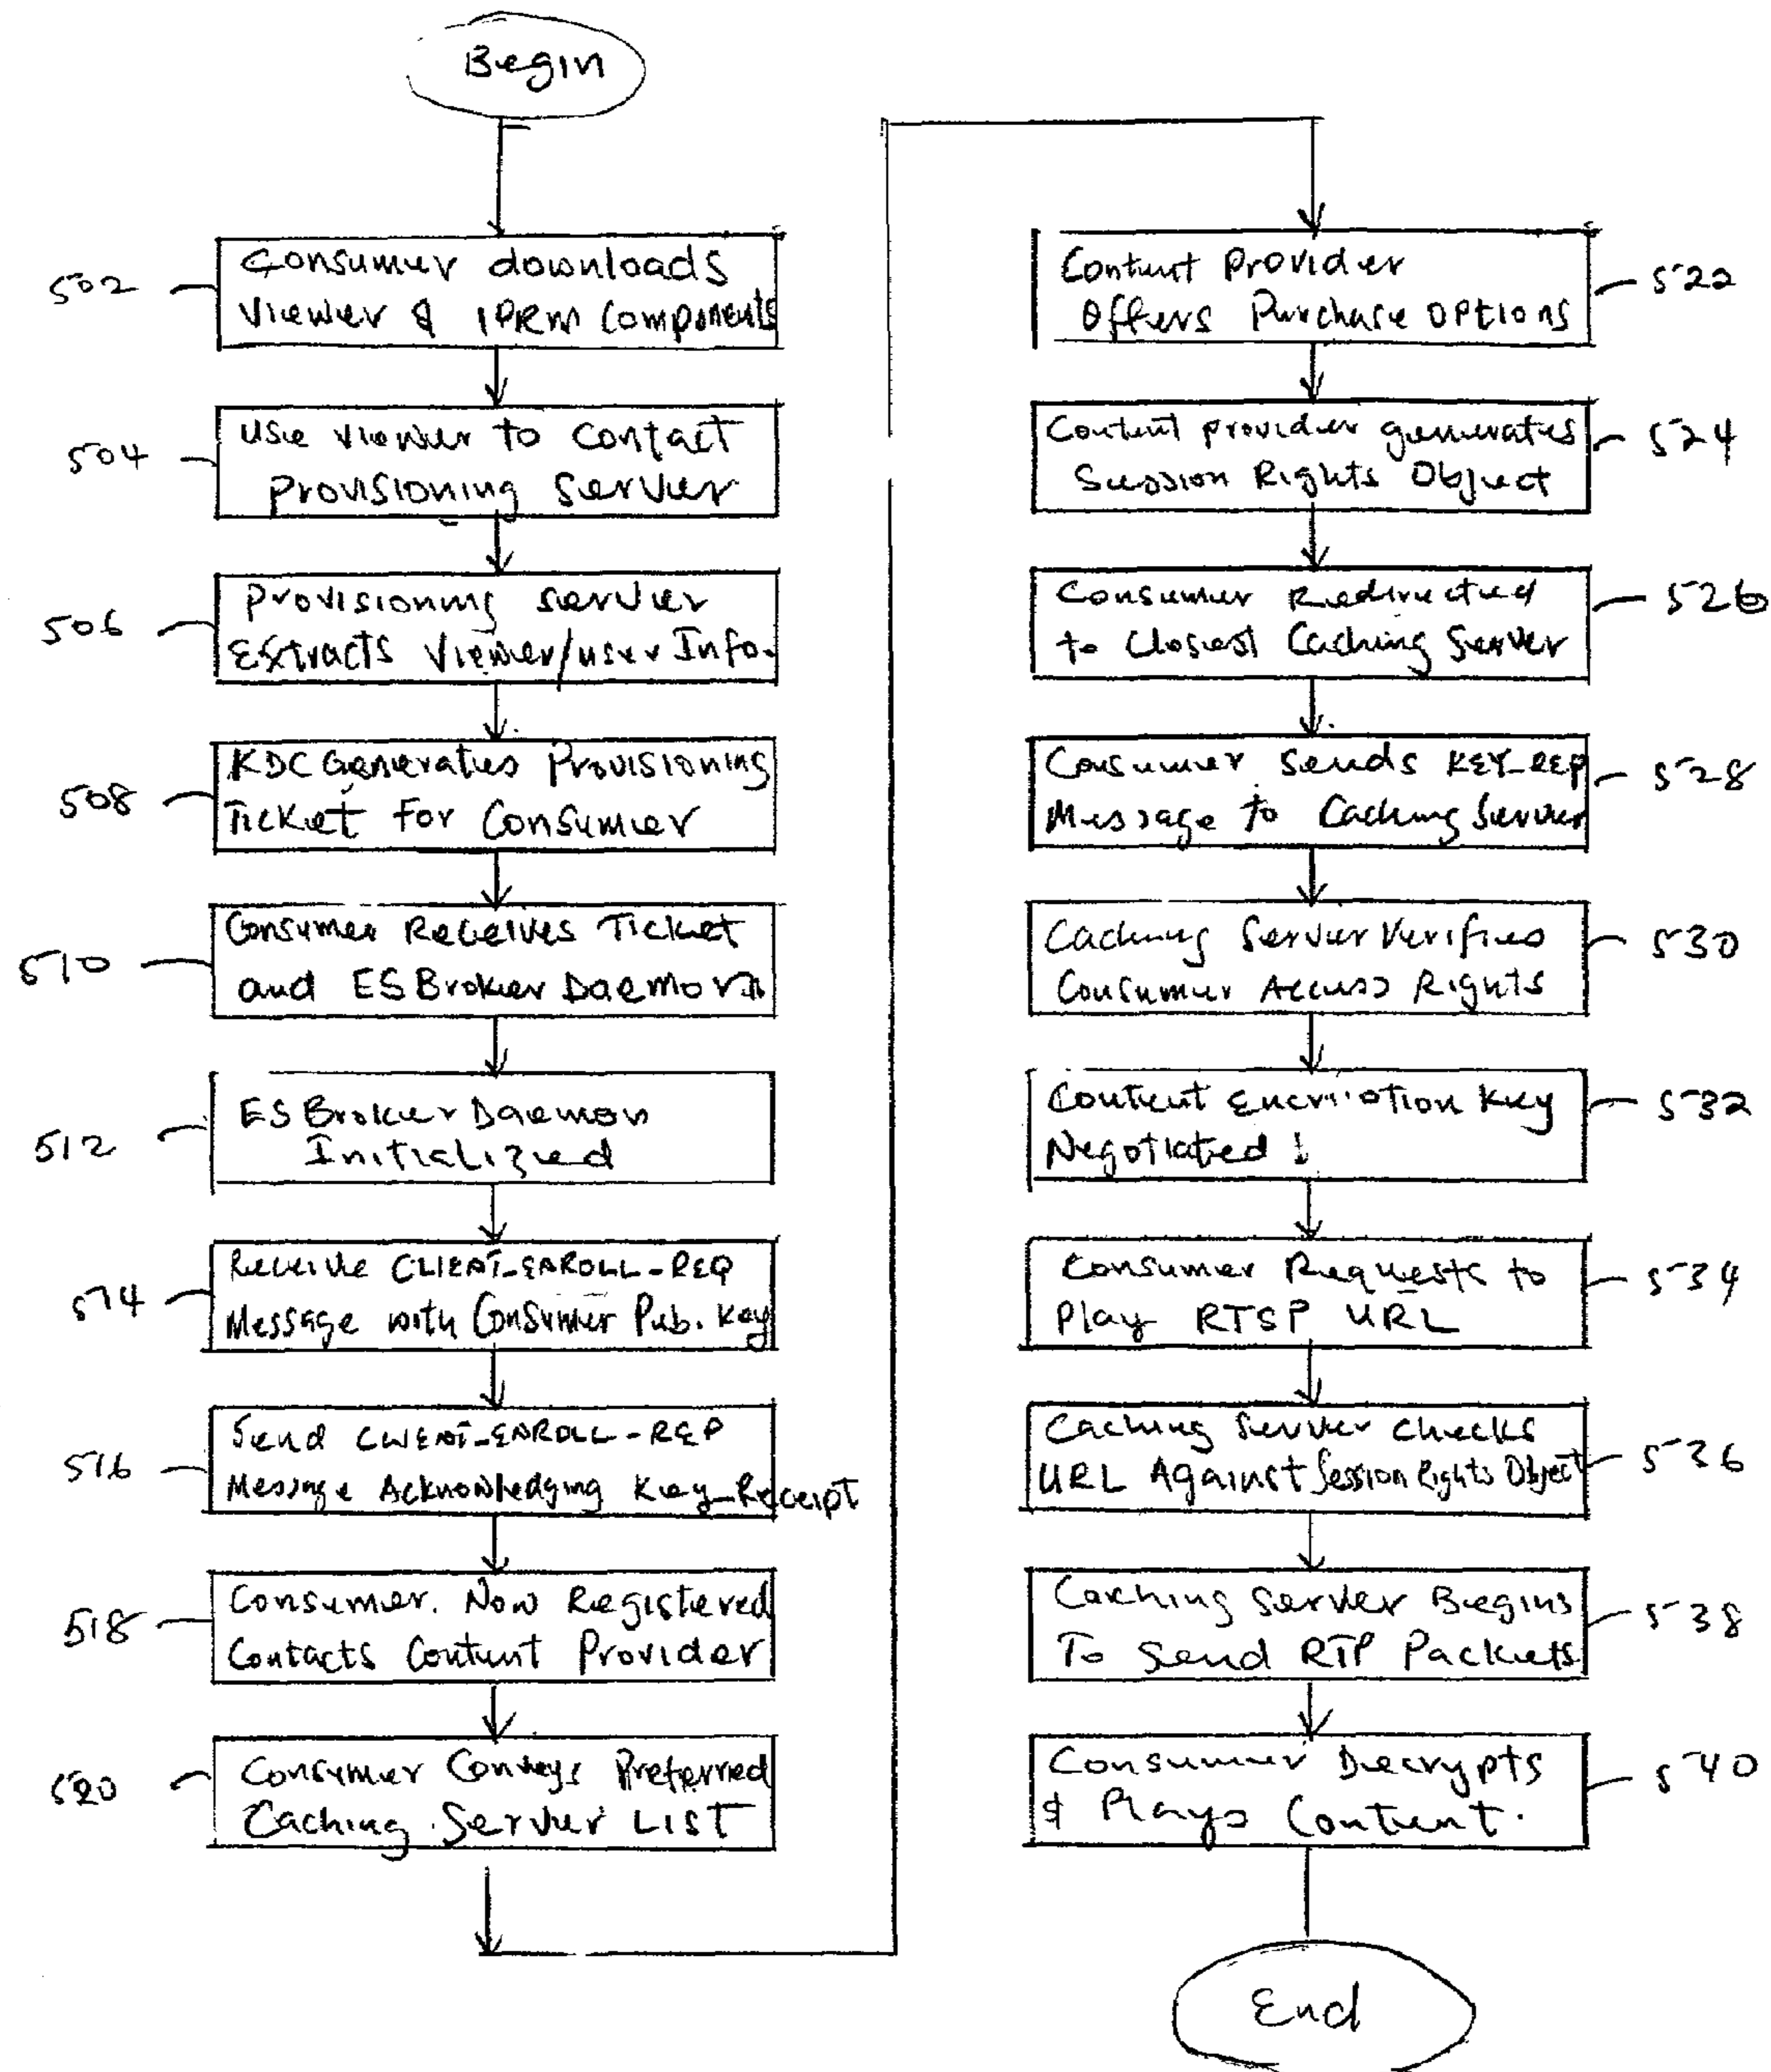 Begin
502
Consumer downloads
Viewer & IPRM Components
504
Use viewer to Contact
Provisioning Server
506
Provisioning server
Extracts Viewer/user Info.
508
KDC Generates Provisioning
Ticket For Consumer
510
Consumer Receives Ticket
and ES Broker Daemon
512
ES Broker Daemon
Initialized
514
Receive CLIENT_ENROLL_REQ
Message with Consumer Pub. Key
516
Send CLIENT_ENROLL_REP
Message Acknowledging Key_Receipt
518
Consumer. Now Registered
Contacts Content Provider
520
Consumer Conveys Preferred
Caching Server LIST
Content Provider
Offers Purchase Options
522
Content provider generates
Session Rights Object
524
Consumer Redirected
to Closest Caching Server
526
Consumer Sends KEY_REP
Message to Caching Server
528
Caching Server Verifies
Consumer Access Rights
530
Content Encryption Key
Negotiated
532
Consumer Requests to
Play RTSP URL
534
Caching Server checks
URL Against Session Rights Object
536
Caching Server Begins
To Send RTP Packets
538
Consumer Decrypts
& Plays Content.
540
End